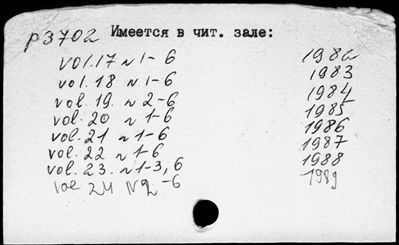 р3702 Имеется в чит. зале:
vol.17 n 1-6 1982
vol.18 n 1-6 1983
vol.19. n 2-6 1984
vol.20 n 1-6 1985
vol.21 n 1-6 1986
vol.22 n 1-6 1987
vol.23. n 1-3, 6 1988
vol 24 N2-6 1989